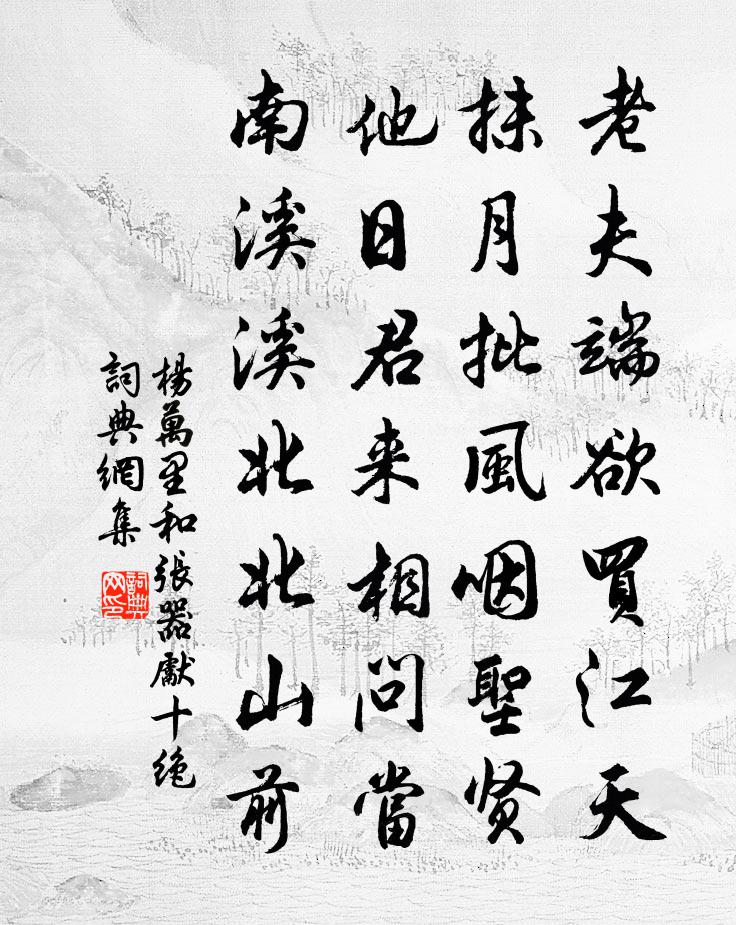 老夫端欲買江天
抹月批風咽聖贤
他日君来相問當
南溪溪北北山前
楊萬里和張器獻十絶
詞典網集
詞典网印